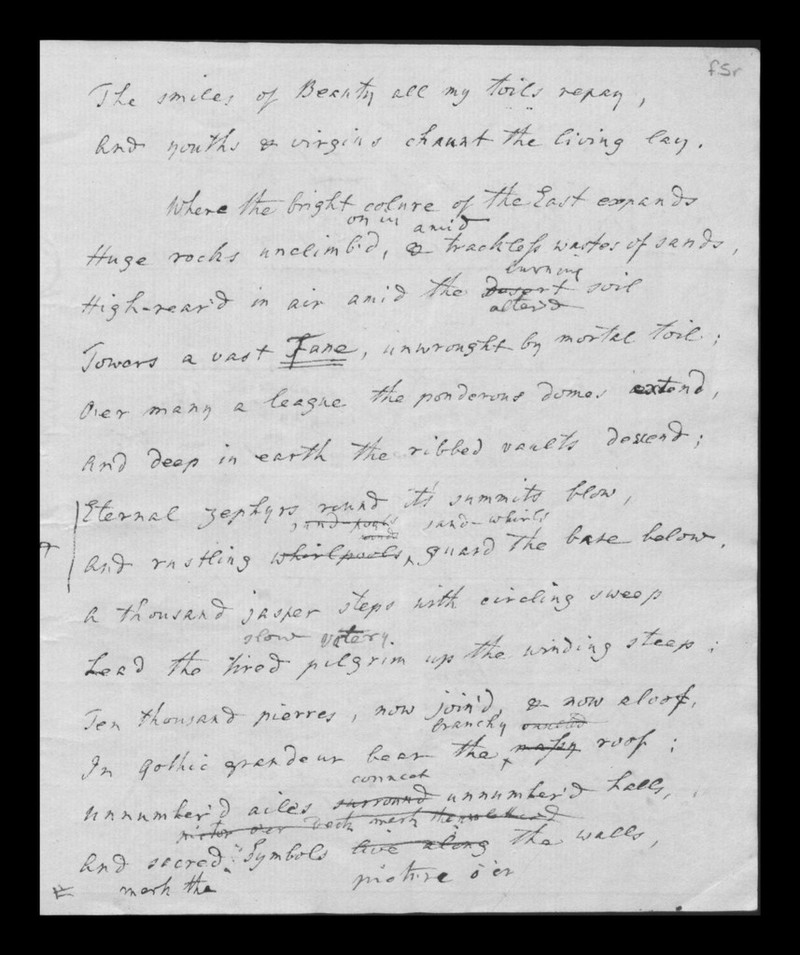 f.5r
The smiles of Beauty all my toils repay,
And youths & virgins chaunt the living lay.
Where the bright colure of the East expands
on in amid
Huge rocks unclimb'd, & trackless wastes of sands,
burning
High-rear'd in air amid the Desert soil
altar'd
Towers a vast Fane, unwrought by mortal toil;
O'er many a league the ponderous domes extend,
And deep in earth the ribbed vaults descend;
Eternal zephyrs round it's summits blow,
, and sand-whirls
And rustling whirlpools guard the base below.
A thousand jasper steps with circling sweep
slow votery.
Lead the tired pilgrim up the winding steep;
Ten thousand pierres, now join'd, & now aloof,
branchy
In gothic grandeur bear the massy roof;
connect
Unnumber'd ailes surround unnumber'd halls,
mark
And sacred Symbols live along the walls,
mark the picture o'er